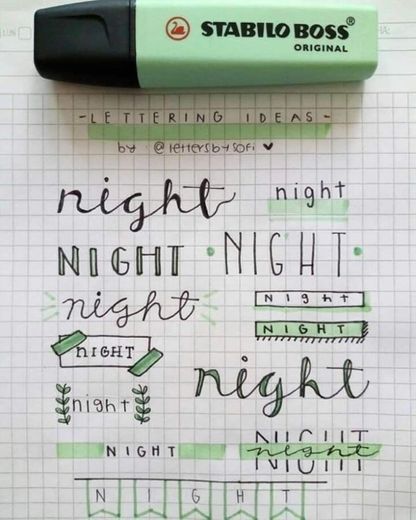 STABILO BOSS®
ORIGINAL
-LETTERING IDEAS-
by @lettersbysofi ♥
night
night
NIGHT
NIGHT
night
Night
NIGHT
NIGHT
night
night
NIGHT
NIGHT
night
NIGHT